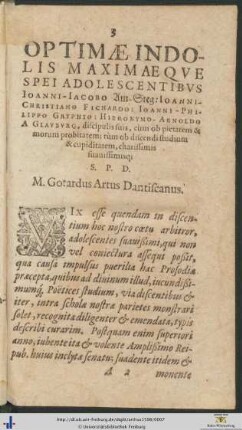 3
OPTIMÆ INDO-
LIS MAXIMAEQVE
SPEI ADOLESCENTIBVS
IOANNI-IACOBO IOANNI-
CHRISTIANO FICHARDO: IOANNI-PHI-
LIPPO HIERONYMO-ARNOLDO
A GLAVBVRG, discipulis suis, cùm ob pietatem &
morum probitatem; tùm ob discendi studium
& cupiditatem, charissimis
suavissimisq;
S. P. D.
M. Gotardus Artus Dantiscanus.
VIX esse quendam in discen-
tium hoc nostro cœtu arbitror,
adolescentes suavissimi, qui non
vel coniectura assequi possit,
qua causa impulsus puerilia hæc Prosodiæ
præcepta, quibus ad divinum illud, iucundissi-
mumq; Poëtices studium, via discentibus &
iter, intra scholæ nostræ parietes monstrari
solet, recognita diligenter & emendata, typis
describi curarim. Postquam enim superiori
anno, iubente ita & volente Amplissimo Rei-
pub. huius inclytæ senatu; suadente itidem &
a 2 monente
© Universitätsbibliothek Freiburg